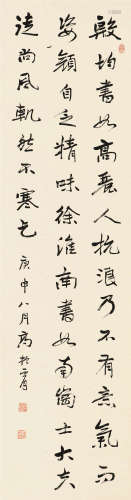 殷均書如高麗人抗浪乃不有意氣而
姿顏自乏精味徐淮南書如南崗士大夫
徒尚風軌然不寒乞 庚申八月